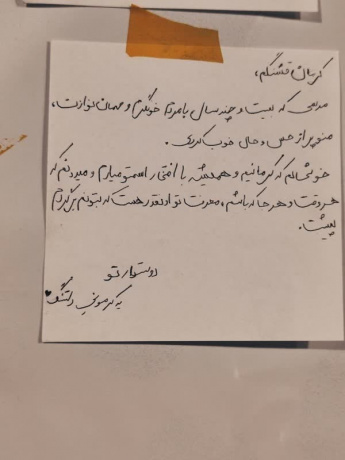 کرمان قشنگم،
مرسی که بیست و چند سال با مردم خونگرم و مهمان نوازت،
منو پر از حس و حال خوب کردی.
خوشحالم که کرمانیم و همیشه با افتخار اسمتو میارم و میدونم که
هروقت و هرجا که باشم، معرفت تو اونقدر هست که بتونم برگردم
پیشت.
دوستدار تو
یه کرمونی دلتنگ ♥